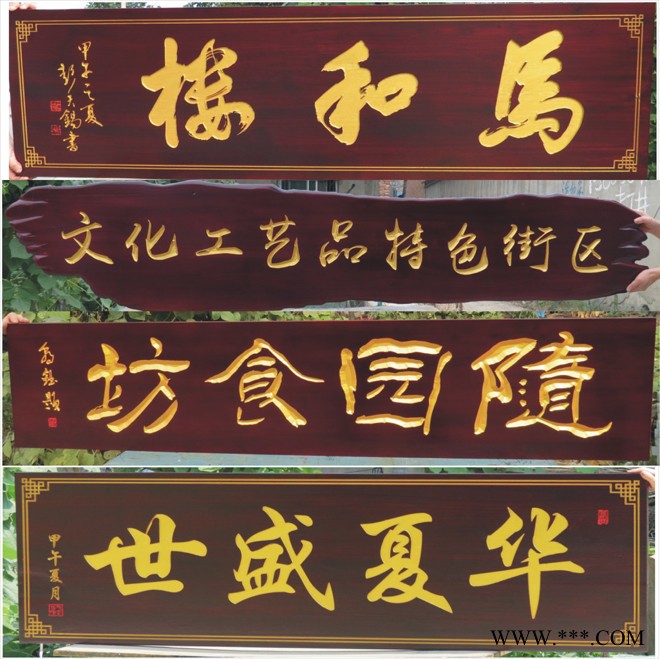 馬和楼
甲午之夏
文化工艺品特色街区
隨園食坊
华夏盛世
甲午夏月
WWW.***.COM